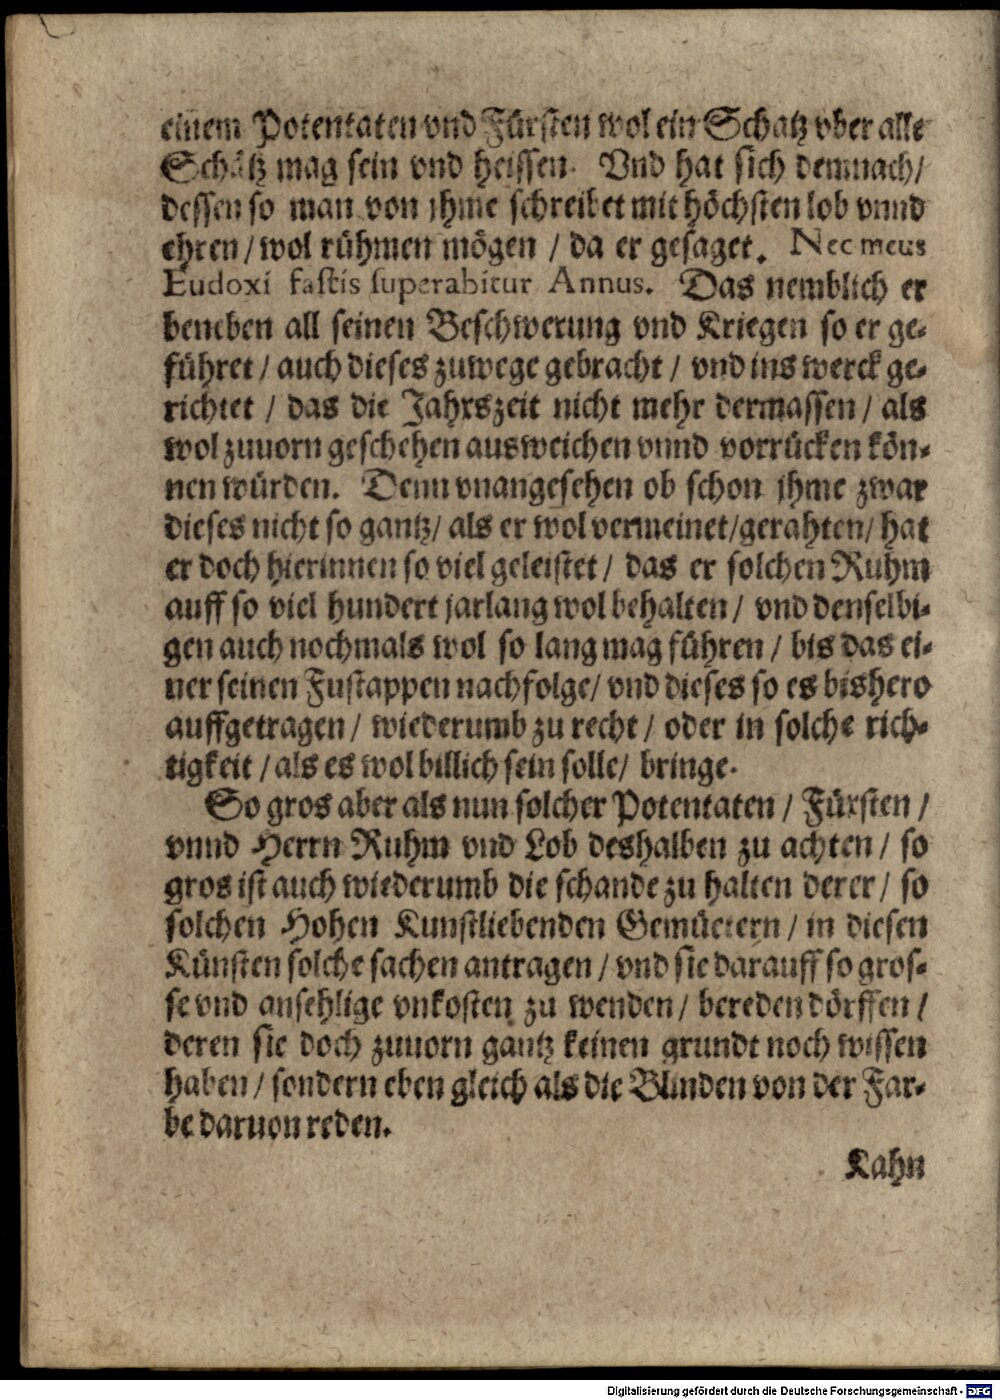 einem Potentaten vnd Fürsten wol ein Schatz vber alle
Schätz mag sein vnd heissen. Vnd hat sich demnach/
dessen so man von jhme schreibet mit höchsten lob vnnd
ehren / wol rühmen mögen / da er gesaget. Nec meus
Eudoxi fastis superabitur Annus. Das nemblich er
beneben all seinen Beschwerung vnd Kriegen so er ge-
führet / auch dieses zuwege gebracht / vnd ins werck ge-
richtet / das die Jahrszeit nicht mehr dermassen / als
wol zuuorn geschehen ausweichen vnnd vorrücken kön-
nen würden. Denn vnangesehen ob schon jhme zwar
dieses nicht so gantz/ als er wol vermeinet/gerahten/ hat
er doch hierinnen so viel geleistet / das er solchen Ruhm
auff so viel hundert jarlang wol behalten / vnd denselbi-
gen auch nochmals wol so lang mag führen / bis das ei-
ner seinen Fustappen nachfolge/ vnd dieses so es bishero
auffgetragen / wiederumb zu recht / oder in solche rich-
tigkeit / als es wol billich sein solle/ bringe.
So gros aber als nun solcher Potentaten / Fürsten /
vnnd Herrn Ruhm vnd Lob deshalben zu achten / so
gros ist auch wiederumb die schande zu halten derer / so
solchen Hohen Kunstliebenden Gemüetern / in diesen
Künsten solche sachen antragen / vnd sie darauff so gros-
se vnd ansehlige vnkosten zu wenden / bereden dörffen /
deren sie doch zuuorn gantz keinen grundt noch wissen
haben / sondern eben gleich als die Blinden von der Far-
be daruon reden.
Kahn
Digitalisierung gefördert durch die Deutsche Forschungsgemeinschaft - DFG